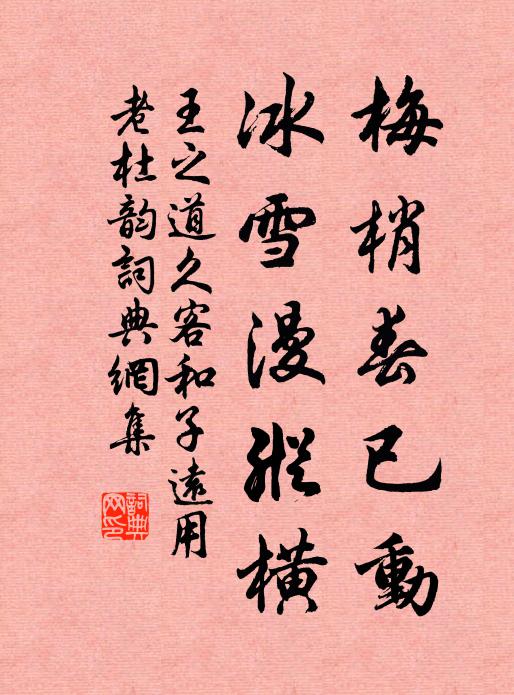 梅梢春已動
冰雪漫縱橫
王之道久客和子遠用
老杜韵詞典網集
詞典网印